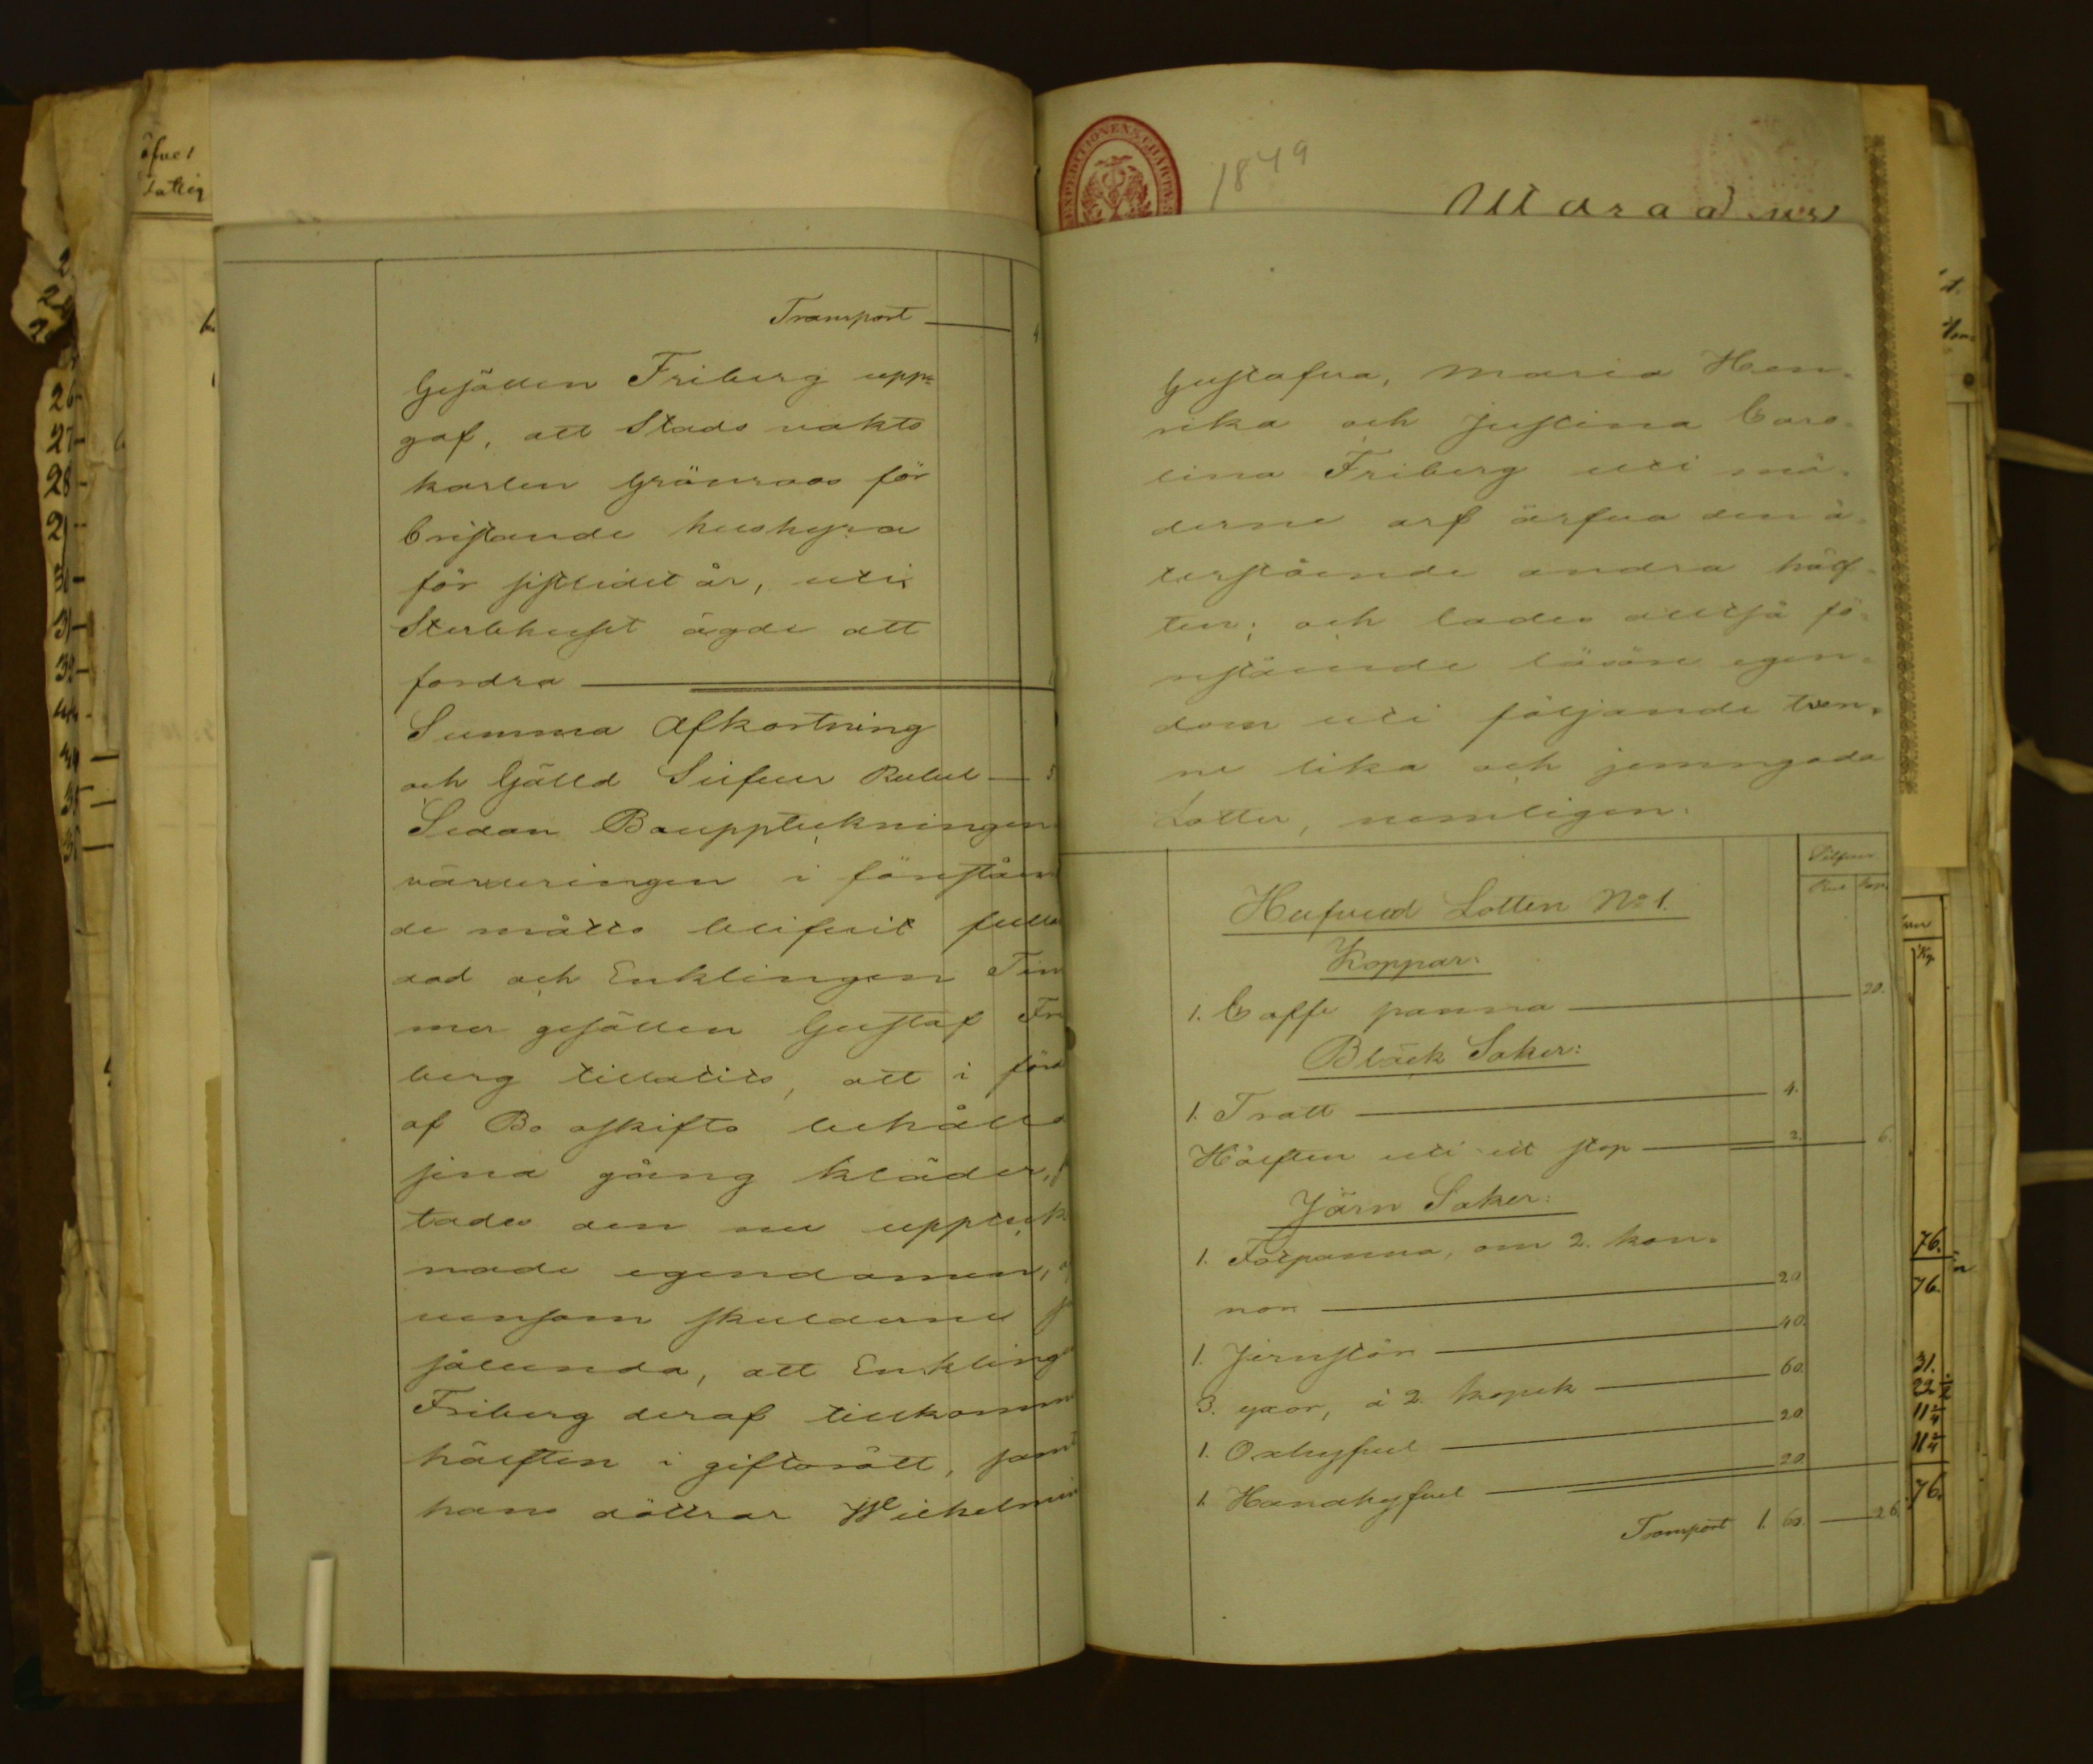 Transport
Gesällen Friberg upp=
gaf, att Stads vakts
karlen Grönroos för
bristande hushyra
för sistlidet år, uti
Sterbhuset ägde att
fordra
Summa Afkortning
och Gälld Silfver Rubel
Sedan Bouppteckningen
värderingen i förestån
de måtto blifvit full
dad och Enklingen Tim
mer gesällen Gustaf Fri
berg tillåtits, att i förd
af Bo oskifto behålla
sina gång kläder,
tades den nu uppteck
nade egendomen,
vensom skulderne
sålunda, att Enklinge
Friberg deraf tillkomme
hälften i giftorätt, samt
hans döttrar Wilhelmin
1849
EXPEDITIONENS CHARTÆ
Gustafva, Maria Hen=
rika och Justina Caro=
lina Friberg uti mö=
derne arf ärfva den å=
terstående andra hälf=
ten; och lades alltså fö=
restående lösöre egen=
dom uti följande tven=
ne lika och jemngoda
Lotter, nemligen:
Silfver
Rub Kop.
Hufvud Lotten No 1.
Koppar:
1. Caffe panna 20.
Bläck Saker:
1. Tratt 4.
Hälften uti ett stop 2. 6.
Järn Saker:
1. Fotpanna, om 2. kan=
nor 20.
1. Jernstör 40.
3. yxor, à 2. kopek 60.
1. Oxhyfvel 20.
1. Handhyfvel 20.
Transport 1. 60. 26.
76.
76.
31.
76.